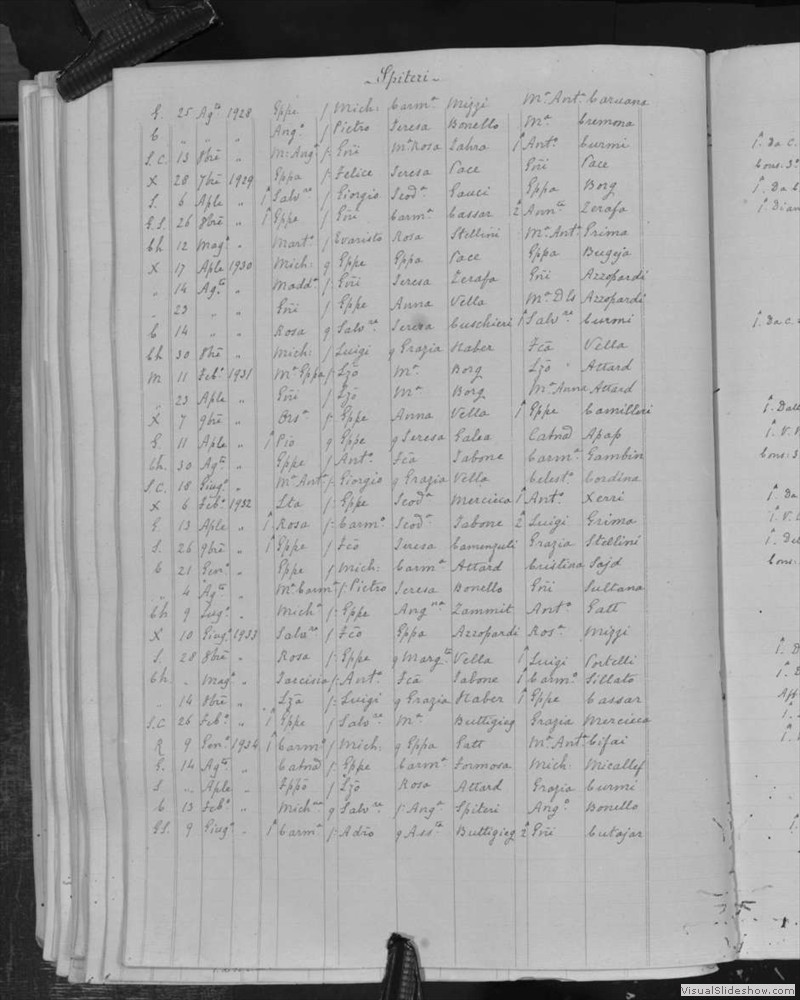 Spiteri
G. 25 Agto 1928 Gppe f. Mich: Carma Mizzi Ma Anta Caruana
C " " " Ango f. Pietro Teresa Bonello Ma Cremona
S.C. 13 8bre " Ma Anga f. Gñi Ma Rosa Sabra 1 Anto Curmi
X 28 7bre 1929 Gppa f. Felice Teresa Pace Gñi Pace
S. 6 Aple " 1 Salvre f. Giorgio Teoda Gauci Gppa Borg
G.S. 26 8bre " 1 Gppe f. Gñi Carma Cassar 2 Annta Zerafa
Ch 12 Mago " Marta f. Evaristo Rosa Stellini Ma Anta Grima
X 17 Aple 1930 Mich: q Gppe Gppa Pace Gppa Bugeja
" 14 Agto " Madda f. Gñi Teresa Zerafa Gñi Azzopardi
" 23 " " Gñi f. Gppe Anna Vella Ma Dls Azzopardi
C 14 " " Rosa q Salvre Teresa Cuschieri 1 Salvre Curmi
Ch 30 8bre " Mich: f. Luigi q Grazia Haber Fca Vella
M 11 Febo 1931 Ma Gppa f. Lzo Ma Borg Lzo Attard
" 23 Aple " Gñi f. Lzo Ma Borg Ma Anna Attard
X 7 9bre " Orsa f. Gppe Anna Vella 1 Gppe Camilleri
G. 11 Aple " 1 Pio q Gppe q Teresa Galea Catnad Apap
Ch. 30 Agto " Gppe f. Anto Fca Tabone Carma Gambin
S.C. 18 Giugo " Ma Anta f. Giorgio q Grazia Vella Celesto Cordina
X 6 Febo 1932 Lta f. Gppe Teoda Mercieca 1 Anto Xerri
G. 13 Aple " 1 Rosa f. Carmo Teoda Tabone 2 Luigi Grima
S. 26 9bre " 1 Gppe f. Fco Teresa Camenzuli Grazia Stellini
C 21 Geno " Gppe f. Mich: Carma Attard Cristina Sajd
" 4 Agto " Ma Carma f. Pietro Teresa Bonello Gñi Sultana
Ch 9 Lugo " Micha f. Gppe Angna Zammit Anto Gatt
X 10 Giugo 1933 Salvre f. Fco Gppa Azzopardi Rosa Mizzi
S. 28 8bre " Rosa f. Gppe q Margta Vella 1 Luigi Portelli
Ch. " Mago " Tarcisio f. Anto Fca Tabone 1 Carma Sillato
" 14 8bre " Lza f. Luigi q Grazia Haber 1 Gppe Cassar
S.C. 26 Febo " 1 Gppe f. Salvre Ma Buttigieg Grazia Mercieca
R 9 Geno 1934 1 Carmo f. Mich: q Gppa Gatt Ma Anta Cifai
G. 14 Agto " Catnad f. Gppe Carma Formosa Mich: Micallef
S " Aple " Fppo f. Lzo Rosa Attard Grazia Curmi
C 13 Febo " Miche q Salvre f. Anga Spiteri Ango Bonello
G.S. 9 Giugo " 1 Carma f. Adrio q Assta Buttigieg 2 Gñi Cutajar
1. Da C.
Cons: 3o
1. Da
1. Da C.
1. V.
Cons: 3
1. Da
1. V.
1. Del
Cons:
VisualSlideshow.com